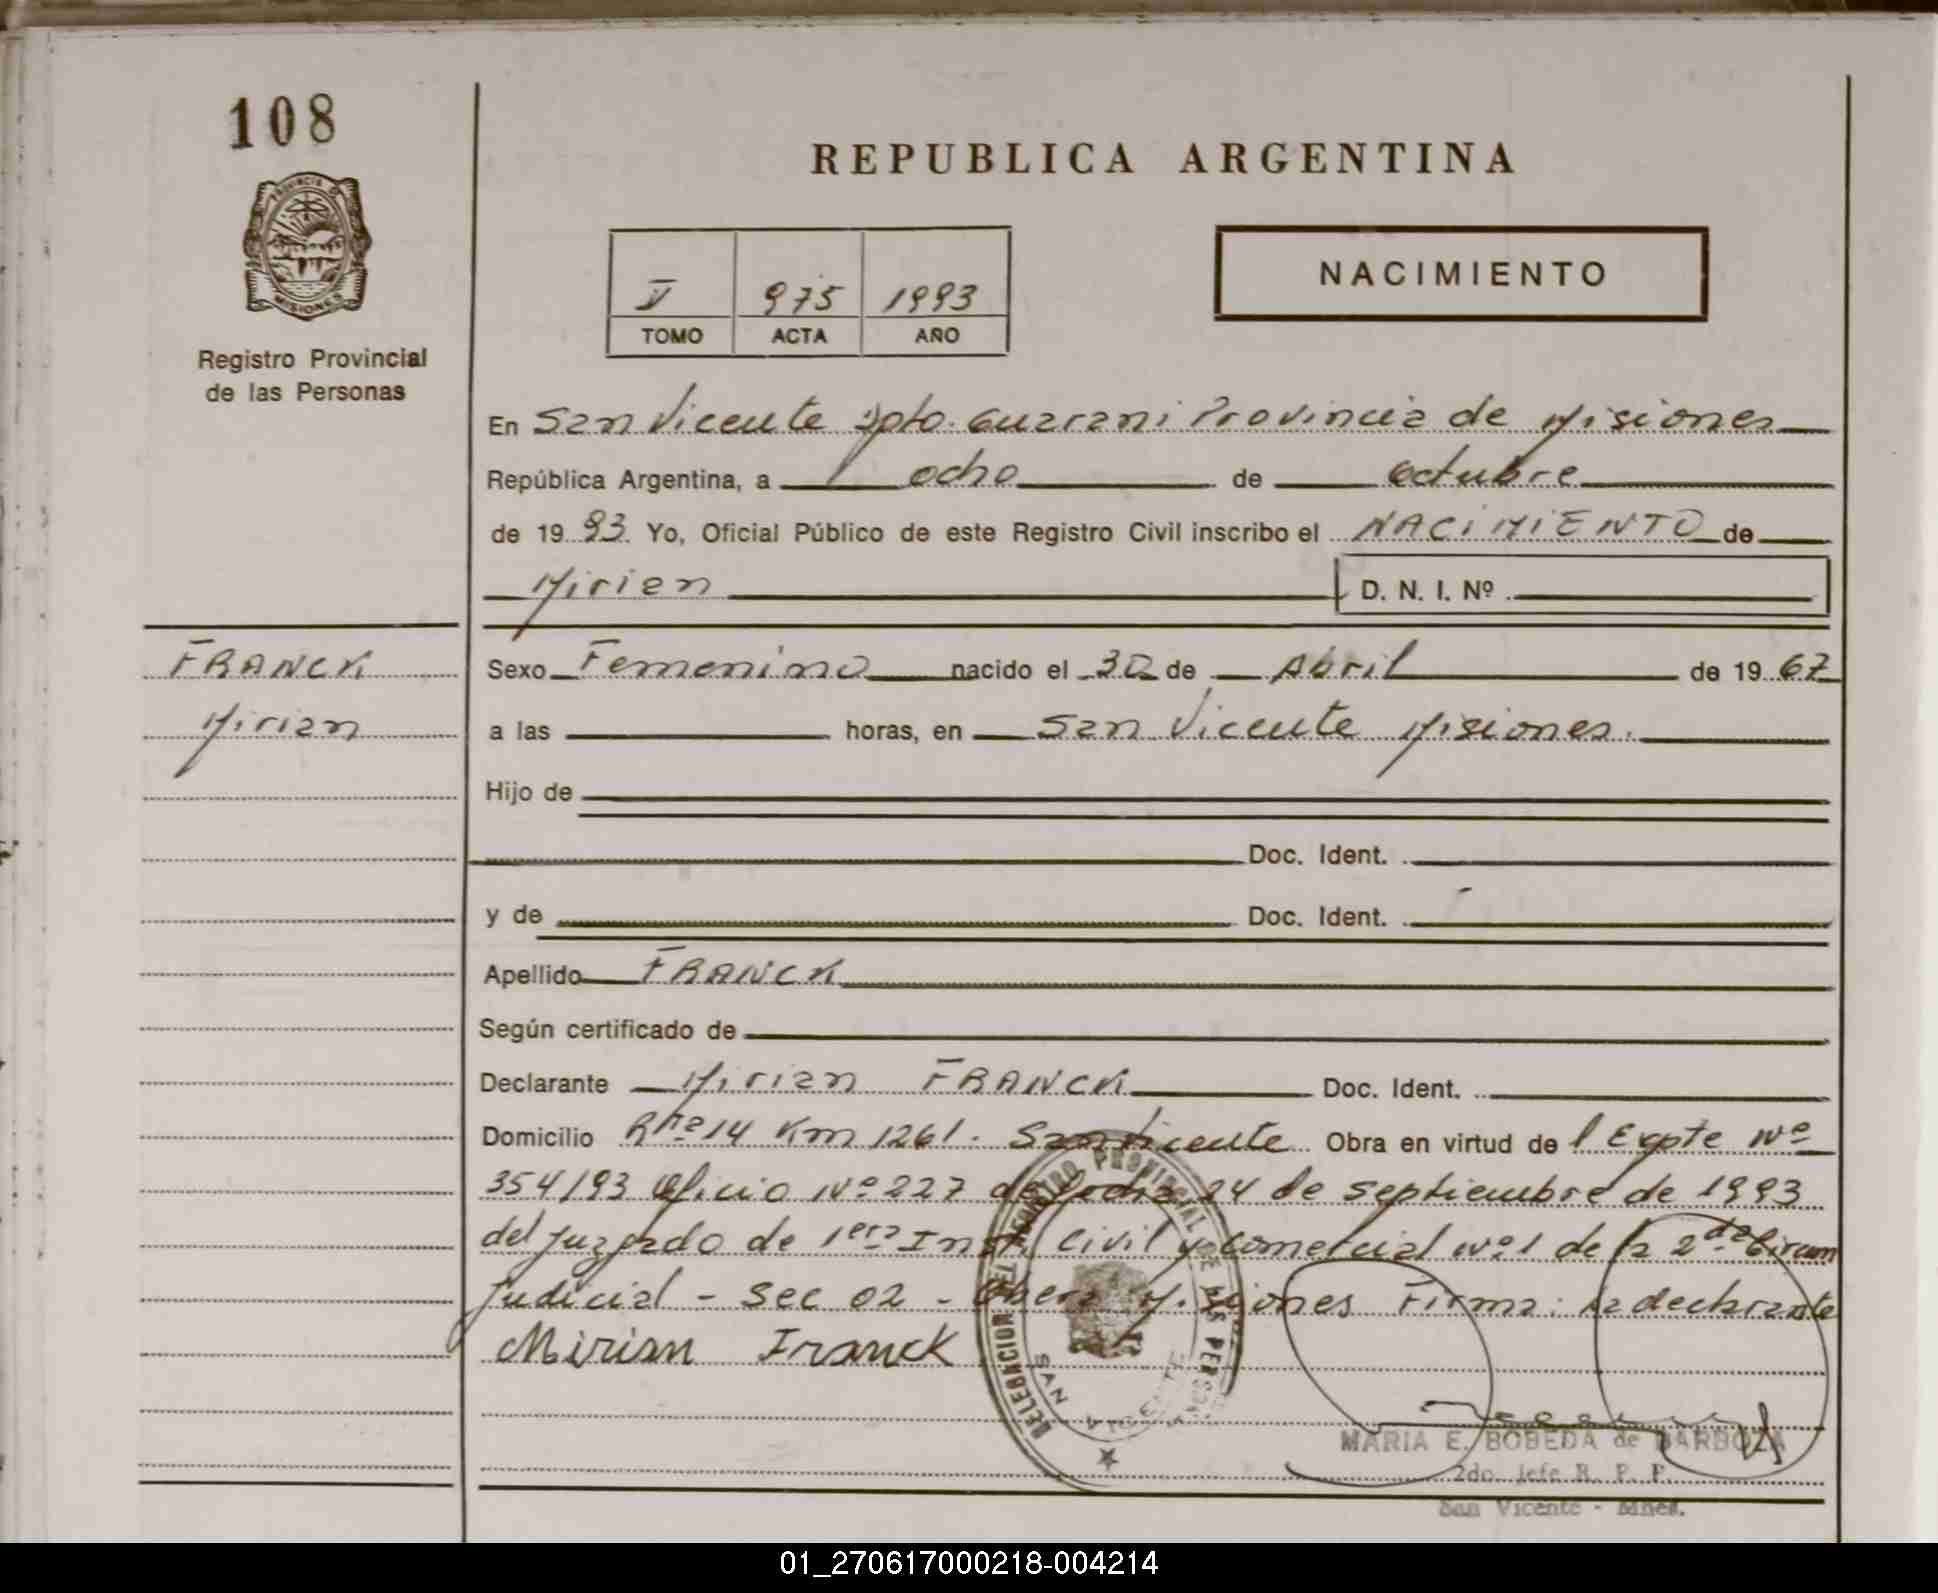 108
REPUBLICA ARGENTINA
PROVINCIA DE MISIONES
V 975 1993
TOMO ACTA AÑO
NACIMIENTO
Registro Provincial
de las Personas
En San Vicente Dpto. Guarani Provincia de Misiones
República Argentina, a ocho de octubre
de 19 93 Yo, Oficial Público de este Registro Civil inscribo el NACIMIENTO de
Mirian D. N. I. Nº
FRANCK
Mirian
Sexo Femenino nacido el 30 de Abril de 19 67
a las horas, en San Vicente Misiones.
Hijo de
Doc. Ident.
y de Doc. Ident.
Apellido FRANCK
Según certificado de
Declarante Mirian FRANCK Doc. Ident.
Domicilio Rta 14 Km 1261. San Vicente Obra en virtud de l Expte Nº
354/93 Oficio Nº 227 de fecha 24 de septiembre de 1993
del Juzgado de 1era Inst. Civil y Comercial Nº 1 de la 2da Circum
Judicial - Sec 02 - Obera Misiones Firma: la declarante
Mirian Franck
DELEGACION DEL REGISTRO PROVINCIAL DE LAS PERSONAS
SAN VICENTE
MARIA E. BOBEDA de BARBOZA
2do. Jefe R. P. P.
San Vicente - Mnes.
01_270617000218-004214